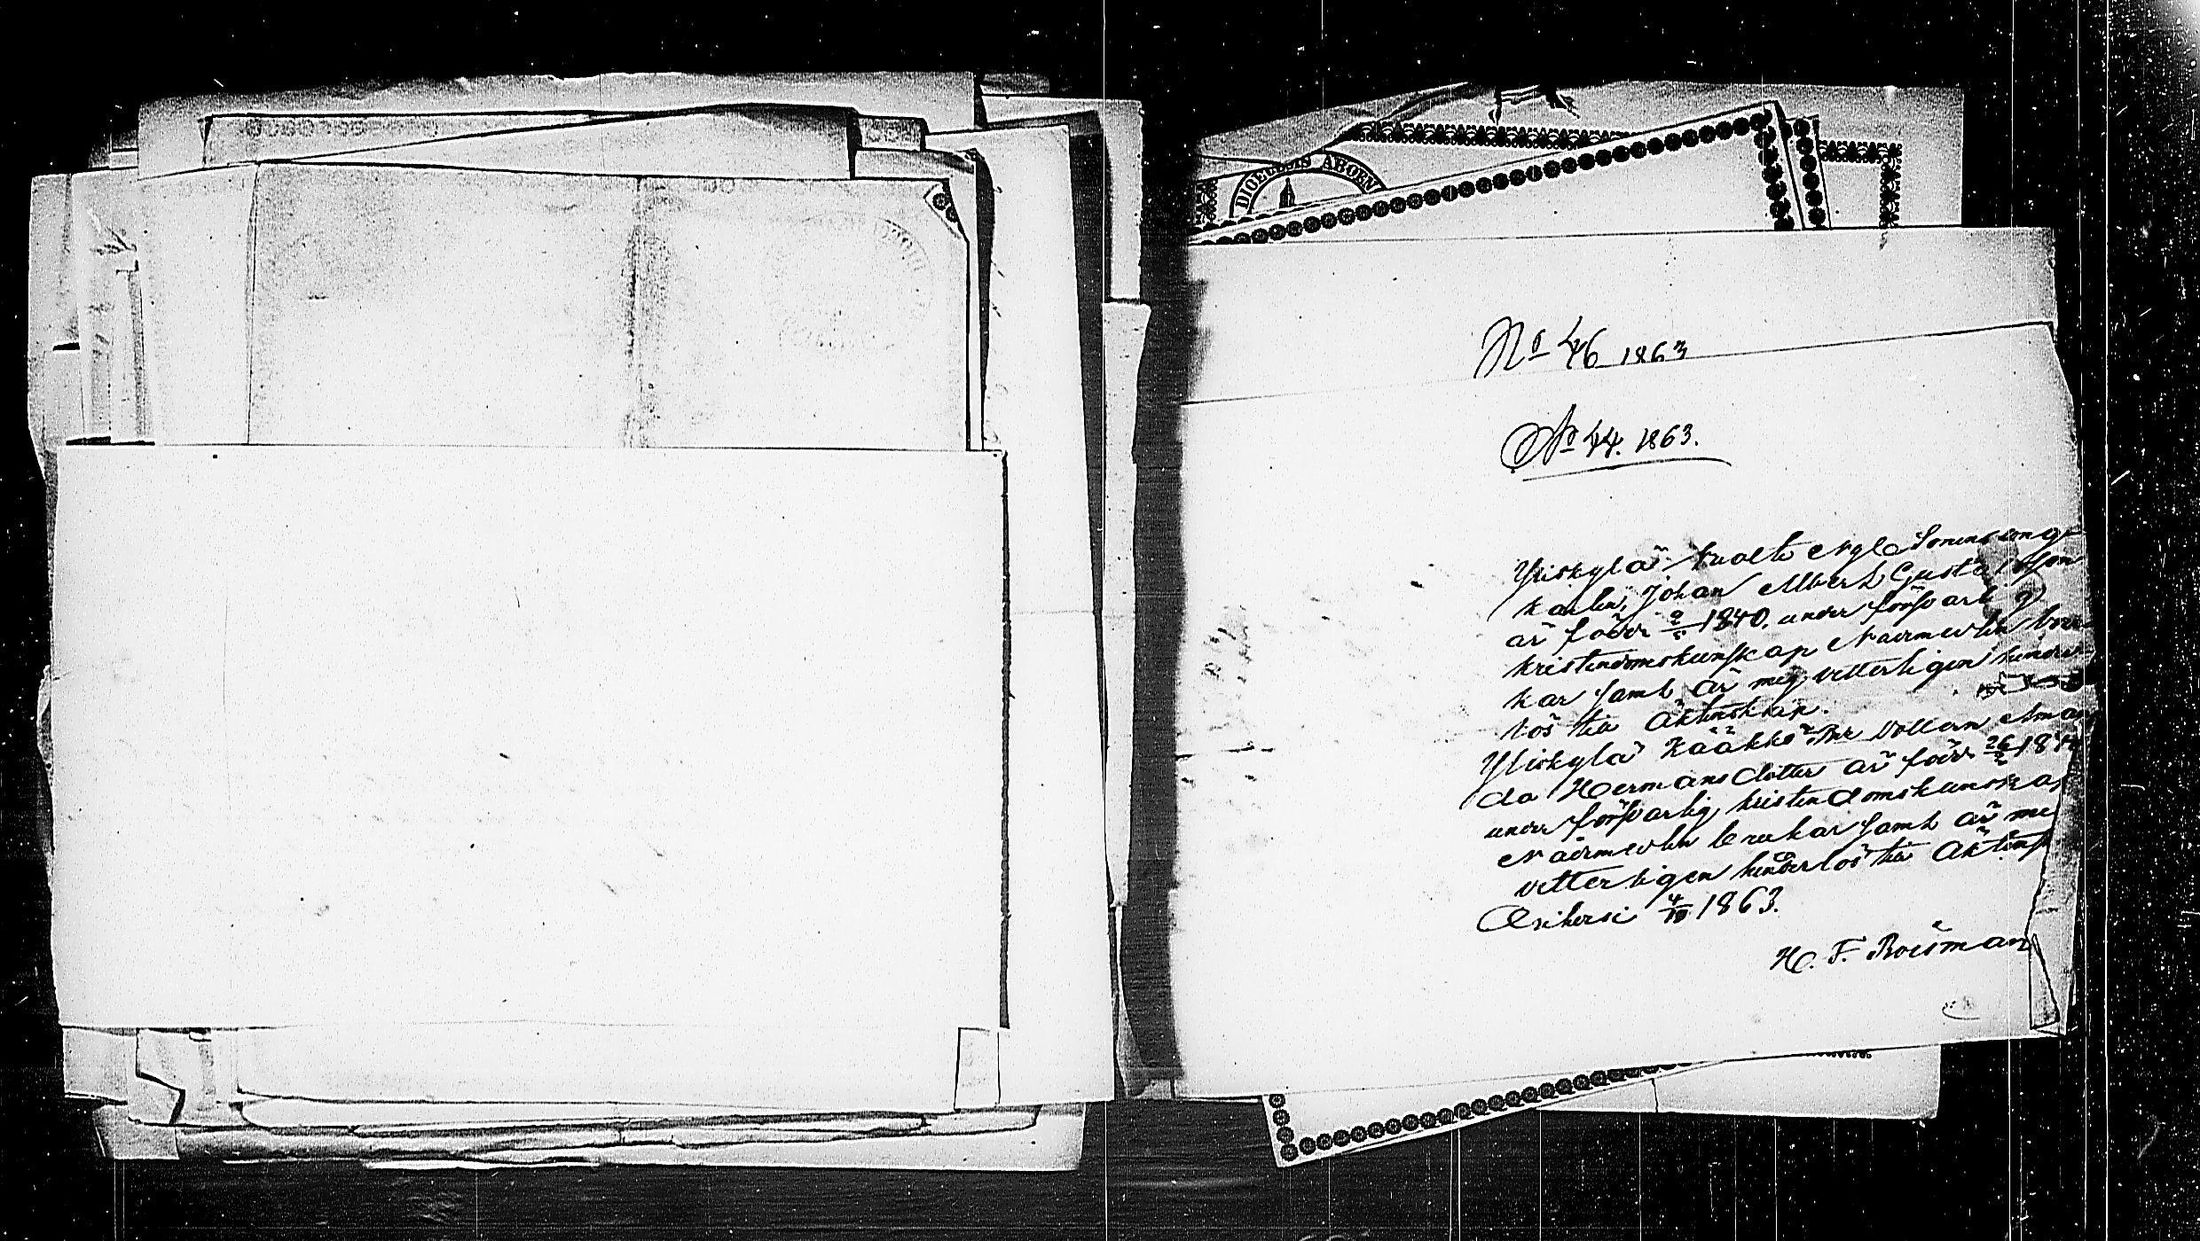 DIOECESIS ABOEN
No 46 1863
No 44. 1863.
Yliskylä
karlen, Johan Albert Gustafsson
är född 1840. under försvarlig
kristendomskunskap Nattvarden
kar samt är mig vetterligen hinder
lös till äktenskap.
Yliskylä Kääkkö Dottern Aman
da Hermansdotter är född 26 18
under försvarlig kristendomskunskap
Nattvarden brukar samt är mig
vetterligen hinderlös till Äktensk
Orihersi 4/10 1863.
H. F. Roisman